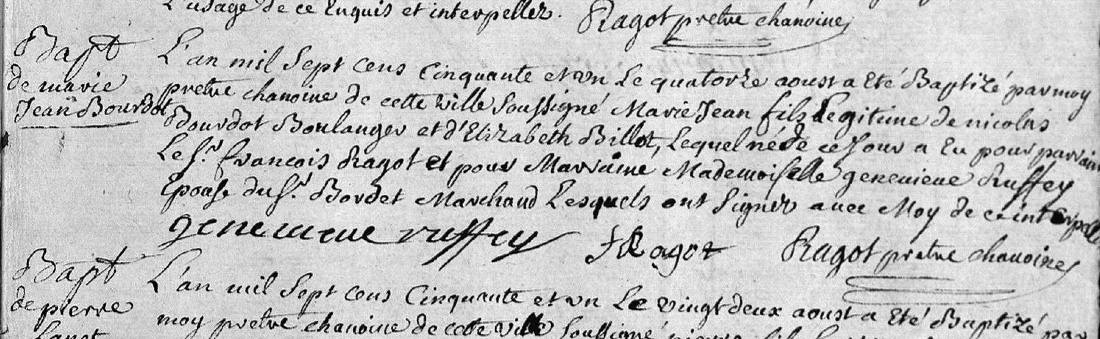 L'usage de ce Enquis et interpellez. Ragot pretre chanoine
Bapt
de marie
Jean Bourdot
L'an mil Sept cens Cinquante et un Le quatorze aoust a Eté Baptizé par moy
pretre chanoine de cette ville Soussigné Marie Jean fils Legitime de nicolas
Bourdot Boulanger et d'Elizabeth Billot, Lequel né de ce Jour a Eu pour parrain
Le Sr. francois Ragot et pour Marraine Mademoiselle genevieve Ruffey
Epouse du Sr. Bordet Marchand Lesquels ont Signez avec Moy de ce interpellez
genevieve ruffey f Ragot Ragot pretre chanoine
Bapt
de pierre
L'an mil Sept cens Cinquante et un Le vingt deux aoust a Eté Baptizé par
moy pretre chanoine de cette ville Soussigné pierre fils